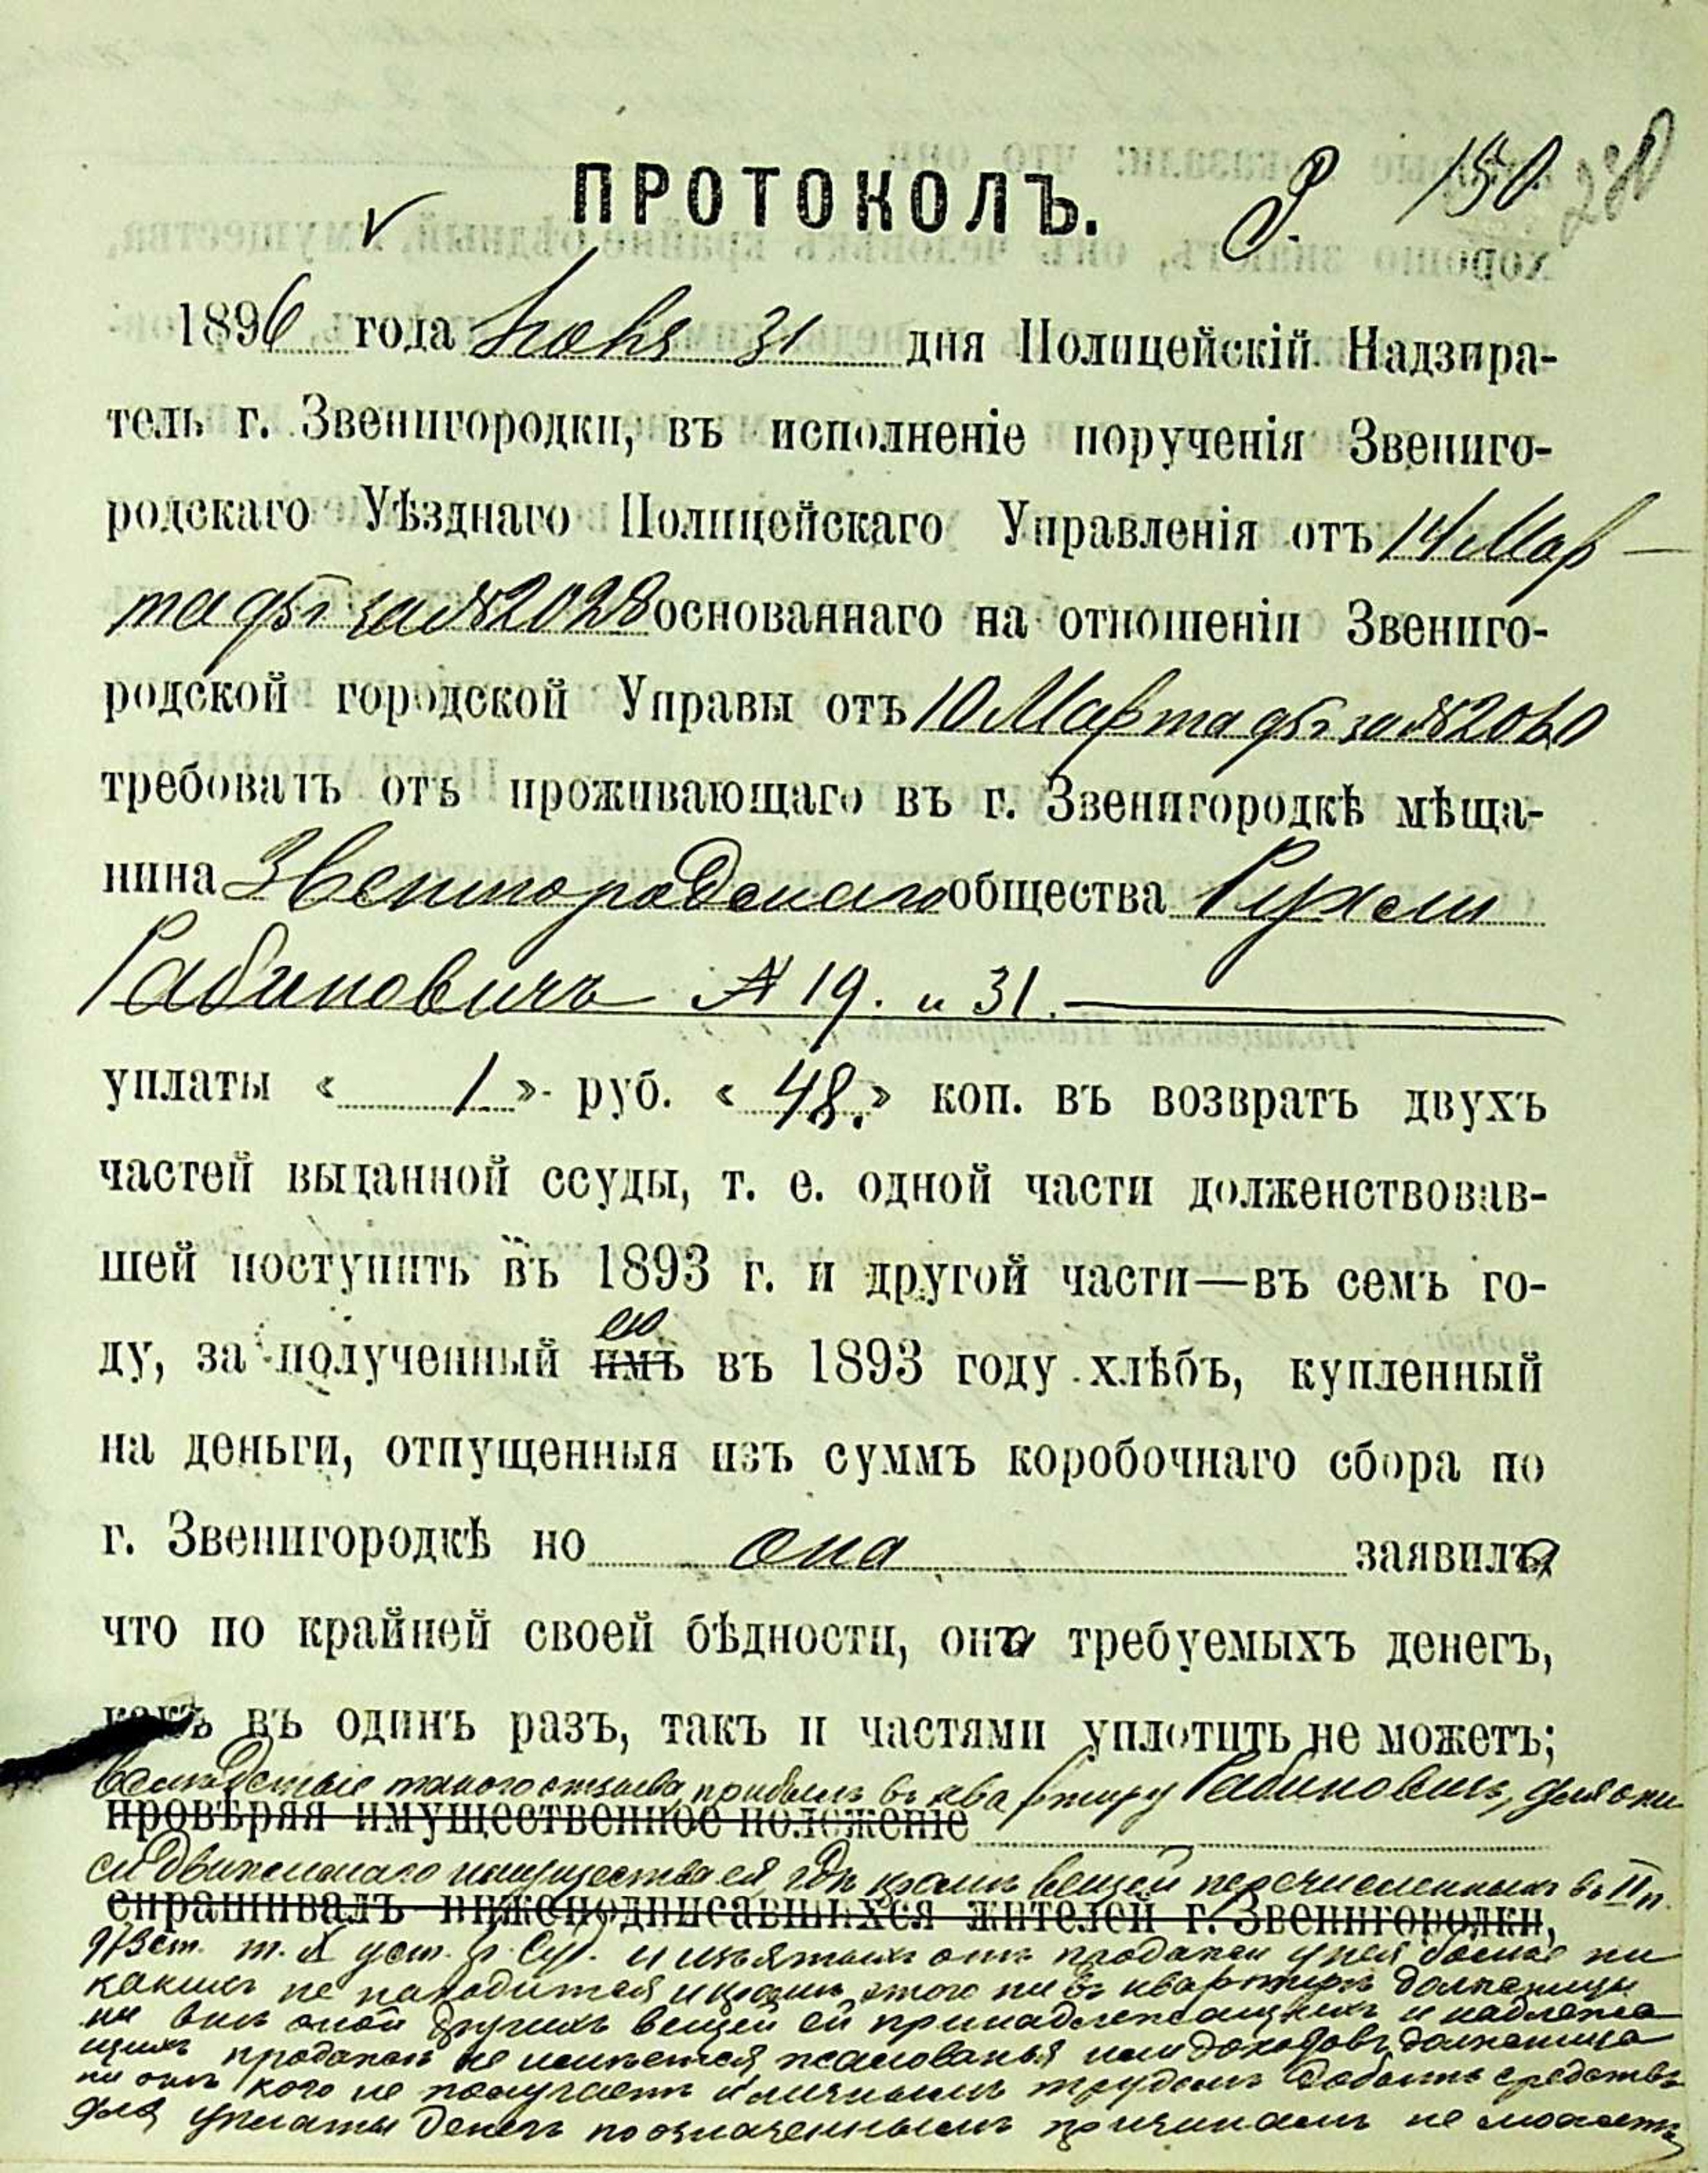 ПРОТОКОЛЪ. Р. 150 280
1896 года Іюня 31 дня Полицейскій Надзира-
тель г. Звенигородки, въ исполненіе порученія Звениго-
родскаго Уѣзднаго Полицейскаго Управленія отъ 14 Мар-
та за № 2028 основаннаго на отношеніи Звениго-
родской городской Управы отъ 10 Марта за № 2060
требовалъ отъ проживающаго въ г. Звенигородкѣ мѣща-
нина Звенигородскаго общества Рухли
Рабиновичъ № 19. и 31.
уплаты « 1 » руб. « 48. » коп. въ возвратъ двухъ
частей выданной ссуды, т. е. одной части долженствовав-
шей поступить въ 1893 г. и другой части—въ семъ го-
ею
ду, за полученный имъ въ 1893 году хлѣбъ, купленный
на деньги, отпущенныя изъ суммъ коробочнаго сбора по
г. Звенигородкѣ но она заявила
что по крайней своей бѣдности, она требуемыхъ денегъ,
какъ въ одинъ разъ, такъ и частями уплотить не можетъ;
вслѣдствіе такого отзыва, прибылъ въ квартиру Рабиновичъ, для опи
провѣряя имущественное положеніе
си движимаго имущества ея гдѣ кромѣ вещей перечисленныхъ въ II п.
спрашивалъ нижеподписавшихся жителей г. Звенигородки,
973 ст. т. X уст. гр. Суд. и изъятыхъ отъ продажи у ней больше ни
какихъ не находится и кромѣ этого ни въ квартирѣ должницы
ни внѣ оной другихъ вещей ей принадлежащихъ и надлежа
щихъ продажѣ не имѣется жалованья или доходовъ должница
ни отъ кого не получаетъ и личнымъ трудомъ добыть средствъ
для уплаты денегъ по означеннымъ причинамъ не можетъ